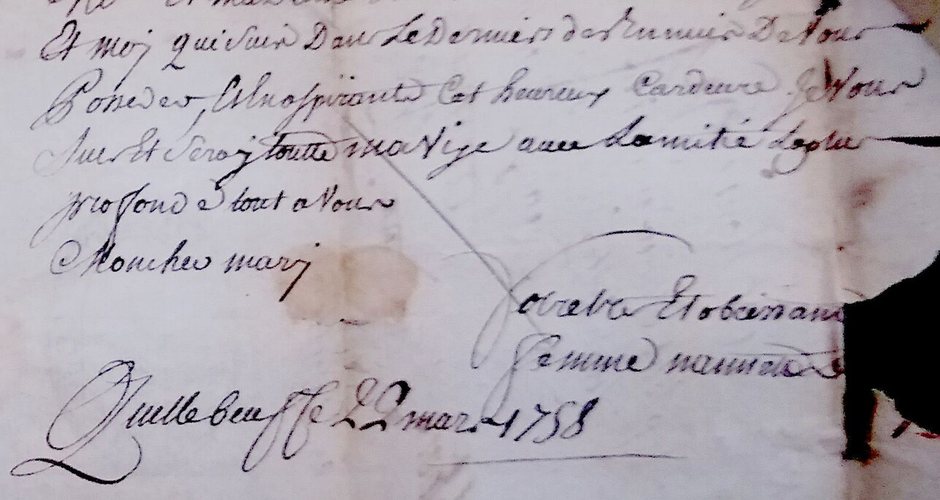 Et moy qui suis Dans Le Dernier des Ennuis De vous
Posseder, Et En aspirante Cet heureux
Suis Et Seroy toutte ma Vye avec Lamitié Leplus
profonde tout a Vous
Moncher mary
Votre tres Et obeissante
femme nannette
Quillebeuffe 22 mars 1758